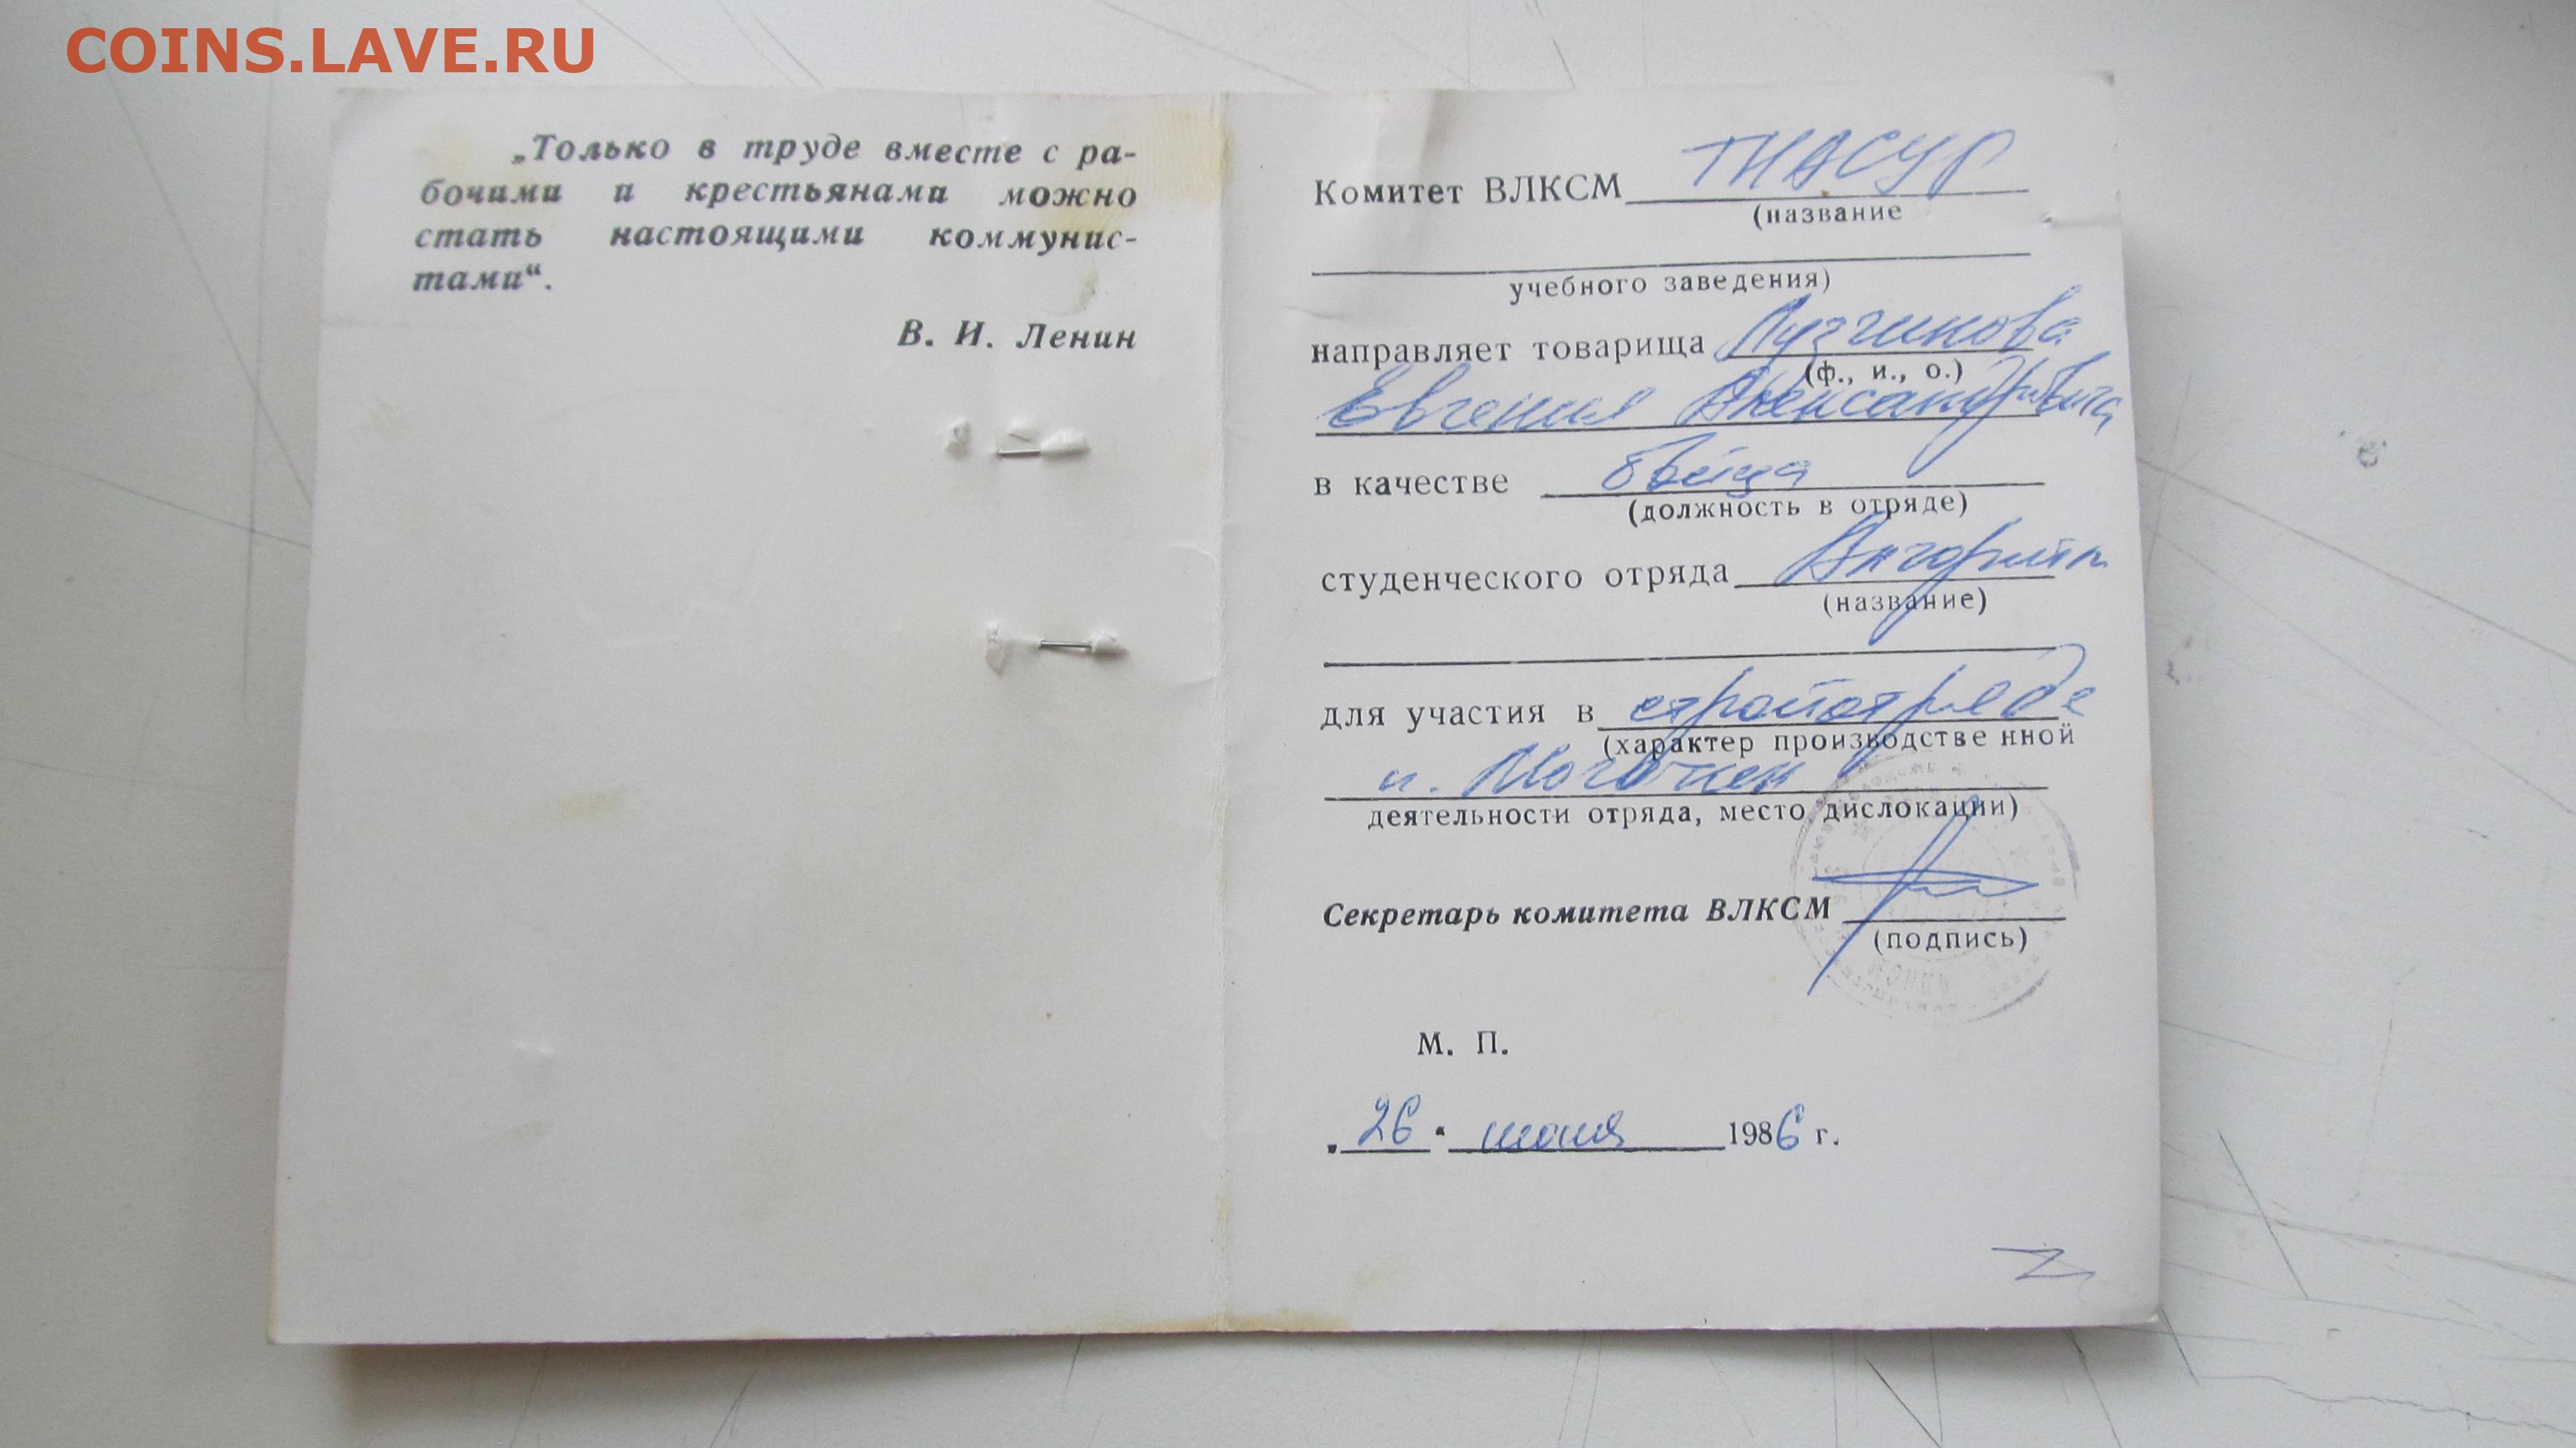 COINS.LAVE.RU
„Только в труде вместе с ра-
бочими и крестьянами можно
стать настоящими коммунис-
тами“.
В. И. Ленин
Комитет ВЛКСМ ТИАСУР
(название
учебного заведения)
направляет товарища
(ф., и., о.)
Евгения Александровича
в качестве бойца
(должность в отряде)
студенческого отряда Алгоритм
(название)
для участия в стройотряде
(характер производстве нной
п.
деятельности отряда, место дислокации)
Секретарь комитета ВЛКСМ
(подпись)
М. П.
„26“ июня 1986 г.